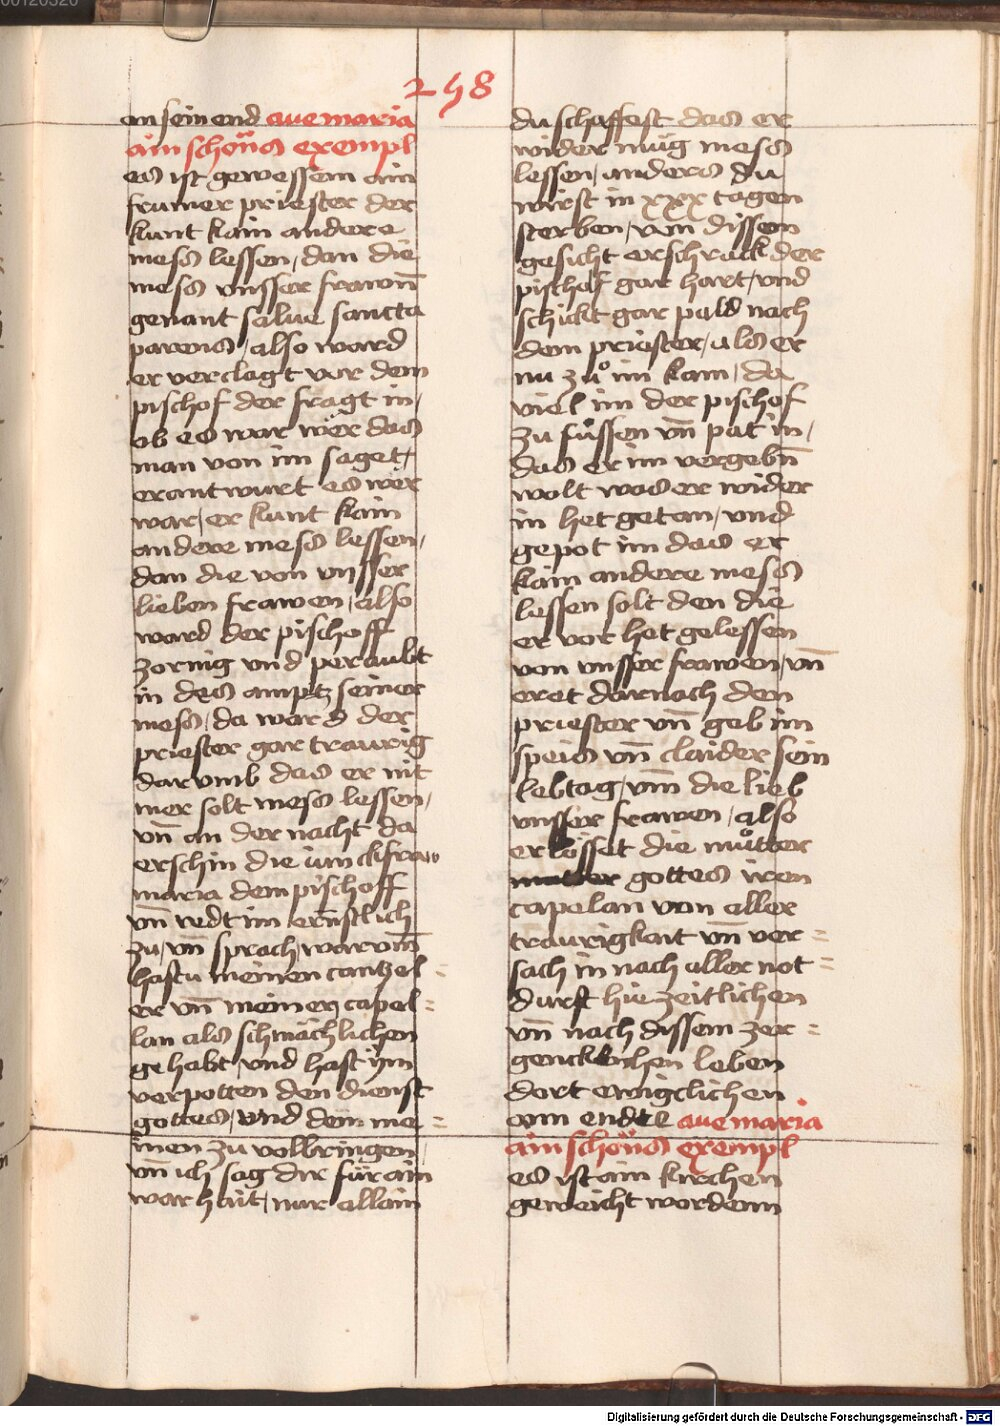 258
an sein end aue maria
ain schöns exempl
es ist gewessenn ain
frumer priester der
kunt kain andere
mess lessen / dan die
mess vnsser frawn̄
genant salue sancta
parens / also ward
er verclagt vor dem
pischof der fragt in /
ob es war wer das
man von im saget /
er antwurt es wer
war / er kunt kain
andere mess lessen /
dan die von vnsser
lieben frawen / also
ward der pischoff
zornig vnd peraubt
in des amptz seiner
mess / da ward der
priester gar traurig
dar vmb das er nit
mer solt mess lessen /
vn̄ an der nacht da
erschin die iunckfraw
maria dem pischoff
vn̄ redt im ernstlich
zu / vn̄ sprach / warum̄
hastu meinen cantzel=
er vn̄ meinen capel=
lan als schmächlichen
gehabt / vnd hast ym
verpotten den dienst
gottes / vnd dem me=
inen zu volbringen /
vn̄ ich sag dir für ain
warhait / nur allain
du schaffest das er
wider müg mess
lessen / anders du
wirst in xxx tagen
sterben / von dissem
gesicht erschrack der
pischof gar hart / vnd
schickt gar pald nach
dem priester / als er
nu zu̇ im kam / da
viel im der pischof
zu füssen vn̄ pat in /
das er im vergebn̄
wolt was er wider
in het getan / vnd
gepot im das er
kain andere mess
lessen solt den die
er vor het gelessen
von vnsser frawen / vn̄
eret darnach den
priester vn̄ geb im
speis vn̄ claider sein
lebtag / vm̄ die lieb
vnsser frawen / also
erlösset die mu̇tter
gottes iren
capelan von aller
traurigkait vn̄ ver=
sach in nach aller not=
durft hie zeitlichen
vn̄ nach dissem zer=
gencklichen leben
dort ewigclichen
on endt aue maria
ain schöns exempl
es ist ain kirchen
geweicht wordenn
Digitalisierung gefördert durch die Deutsche Forschungsgemeinschaft - DFG